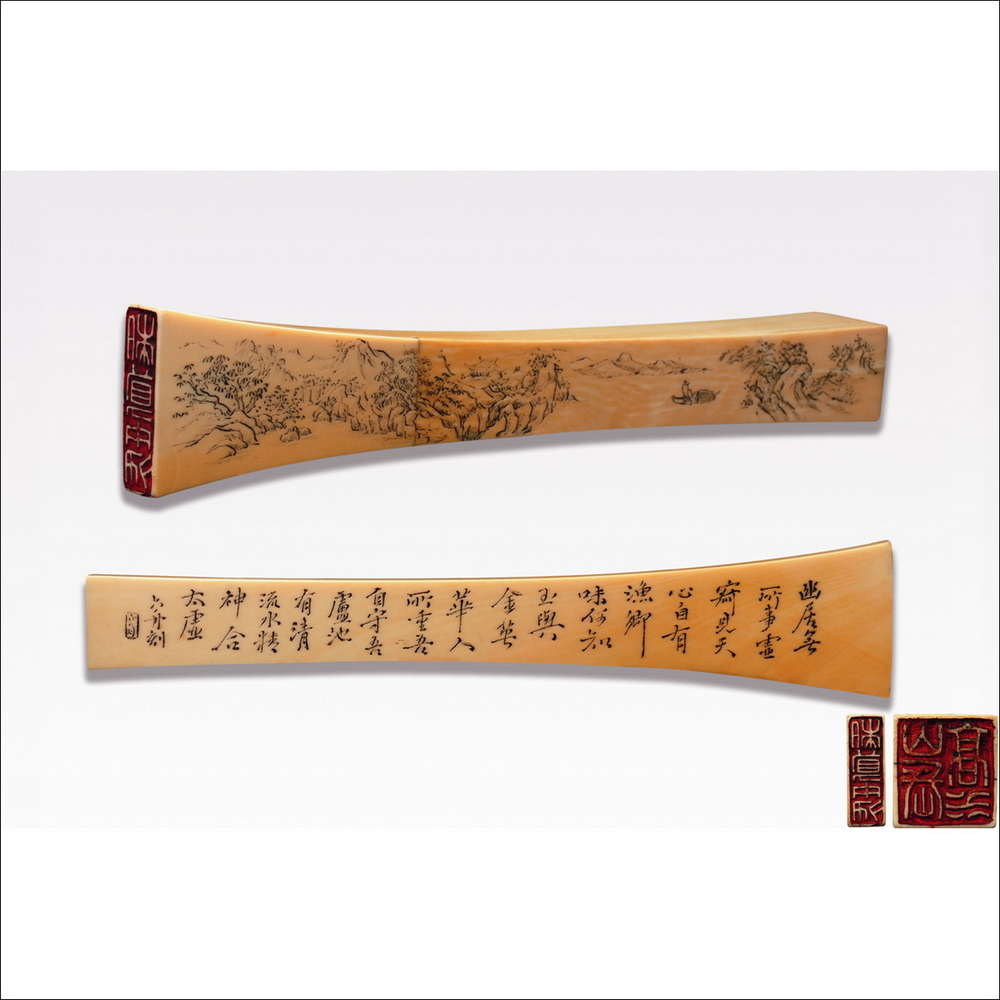 幽居無
所事虛
齋見天
心自有
漁鄉
味何知
玉與
金万
華人
所重吾
自守吾
廬池
有清
流水精
神合
太虛